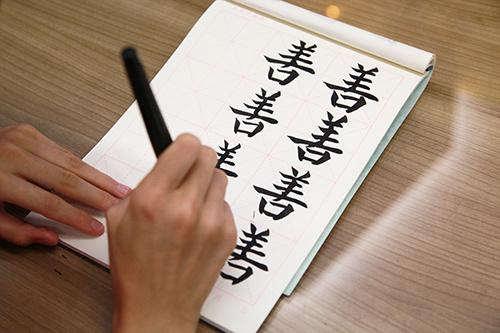 善善善善
善善善